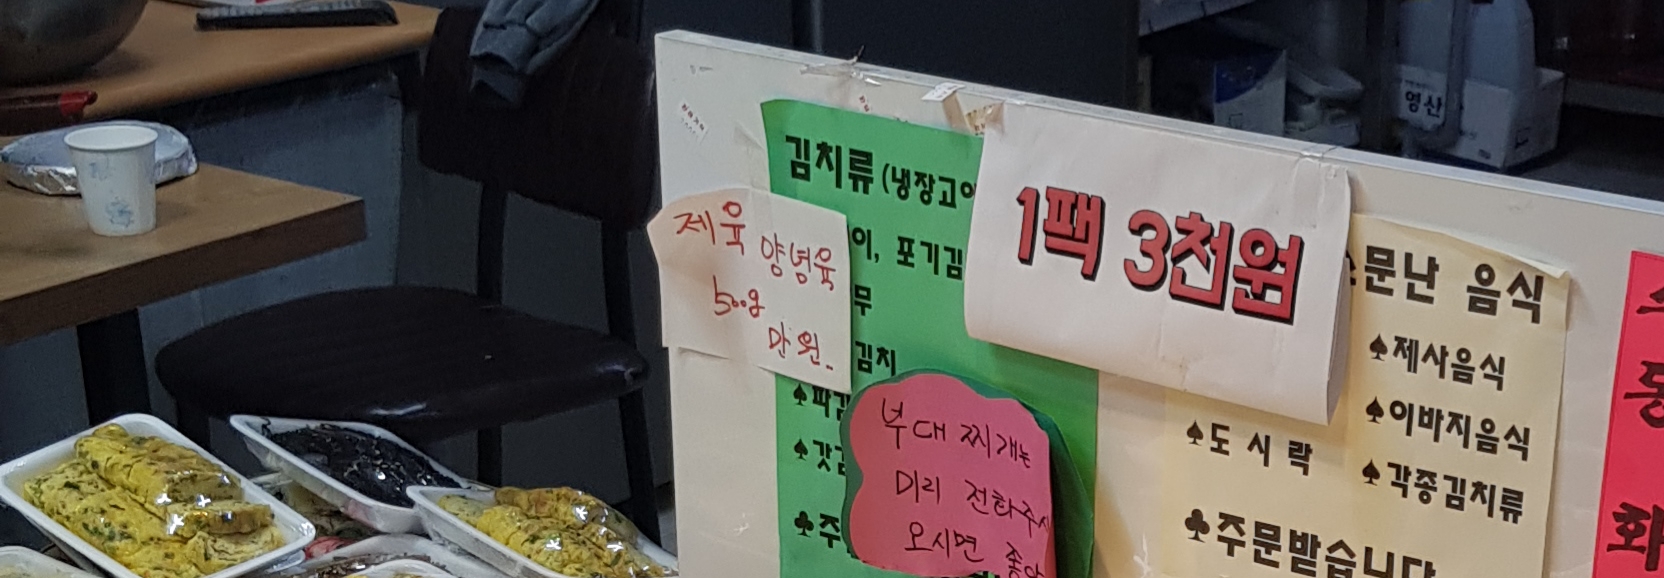 영산
김치류 (냉장고
제육
양념육
500g
만원.
이, 포기김
무
김치
♠파김
♠갓김
♣주
1팩 3천원
부대 찌개는
미리 전화주시
오시면 좋아
소문난 음식
♠제사음식
♠이바지음식
♠도시락
♠각종김치류
♣주문받습니다
화